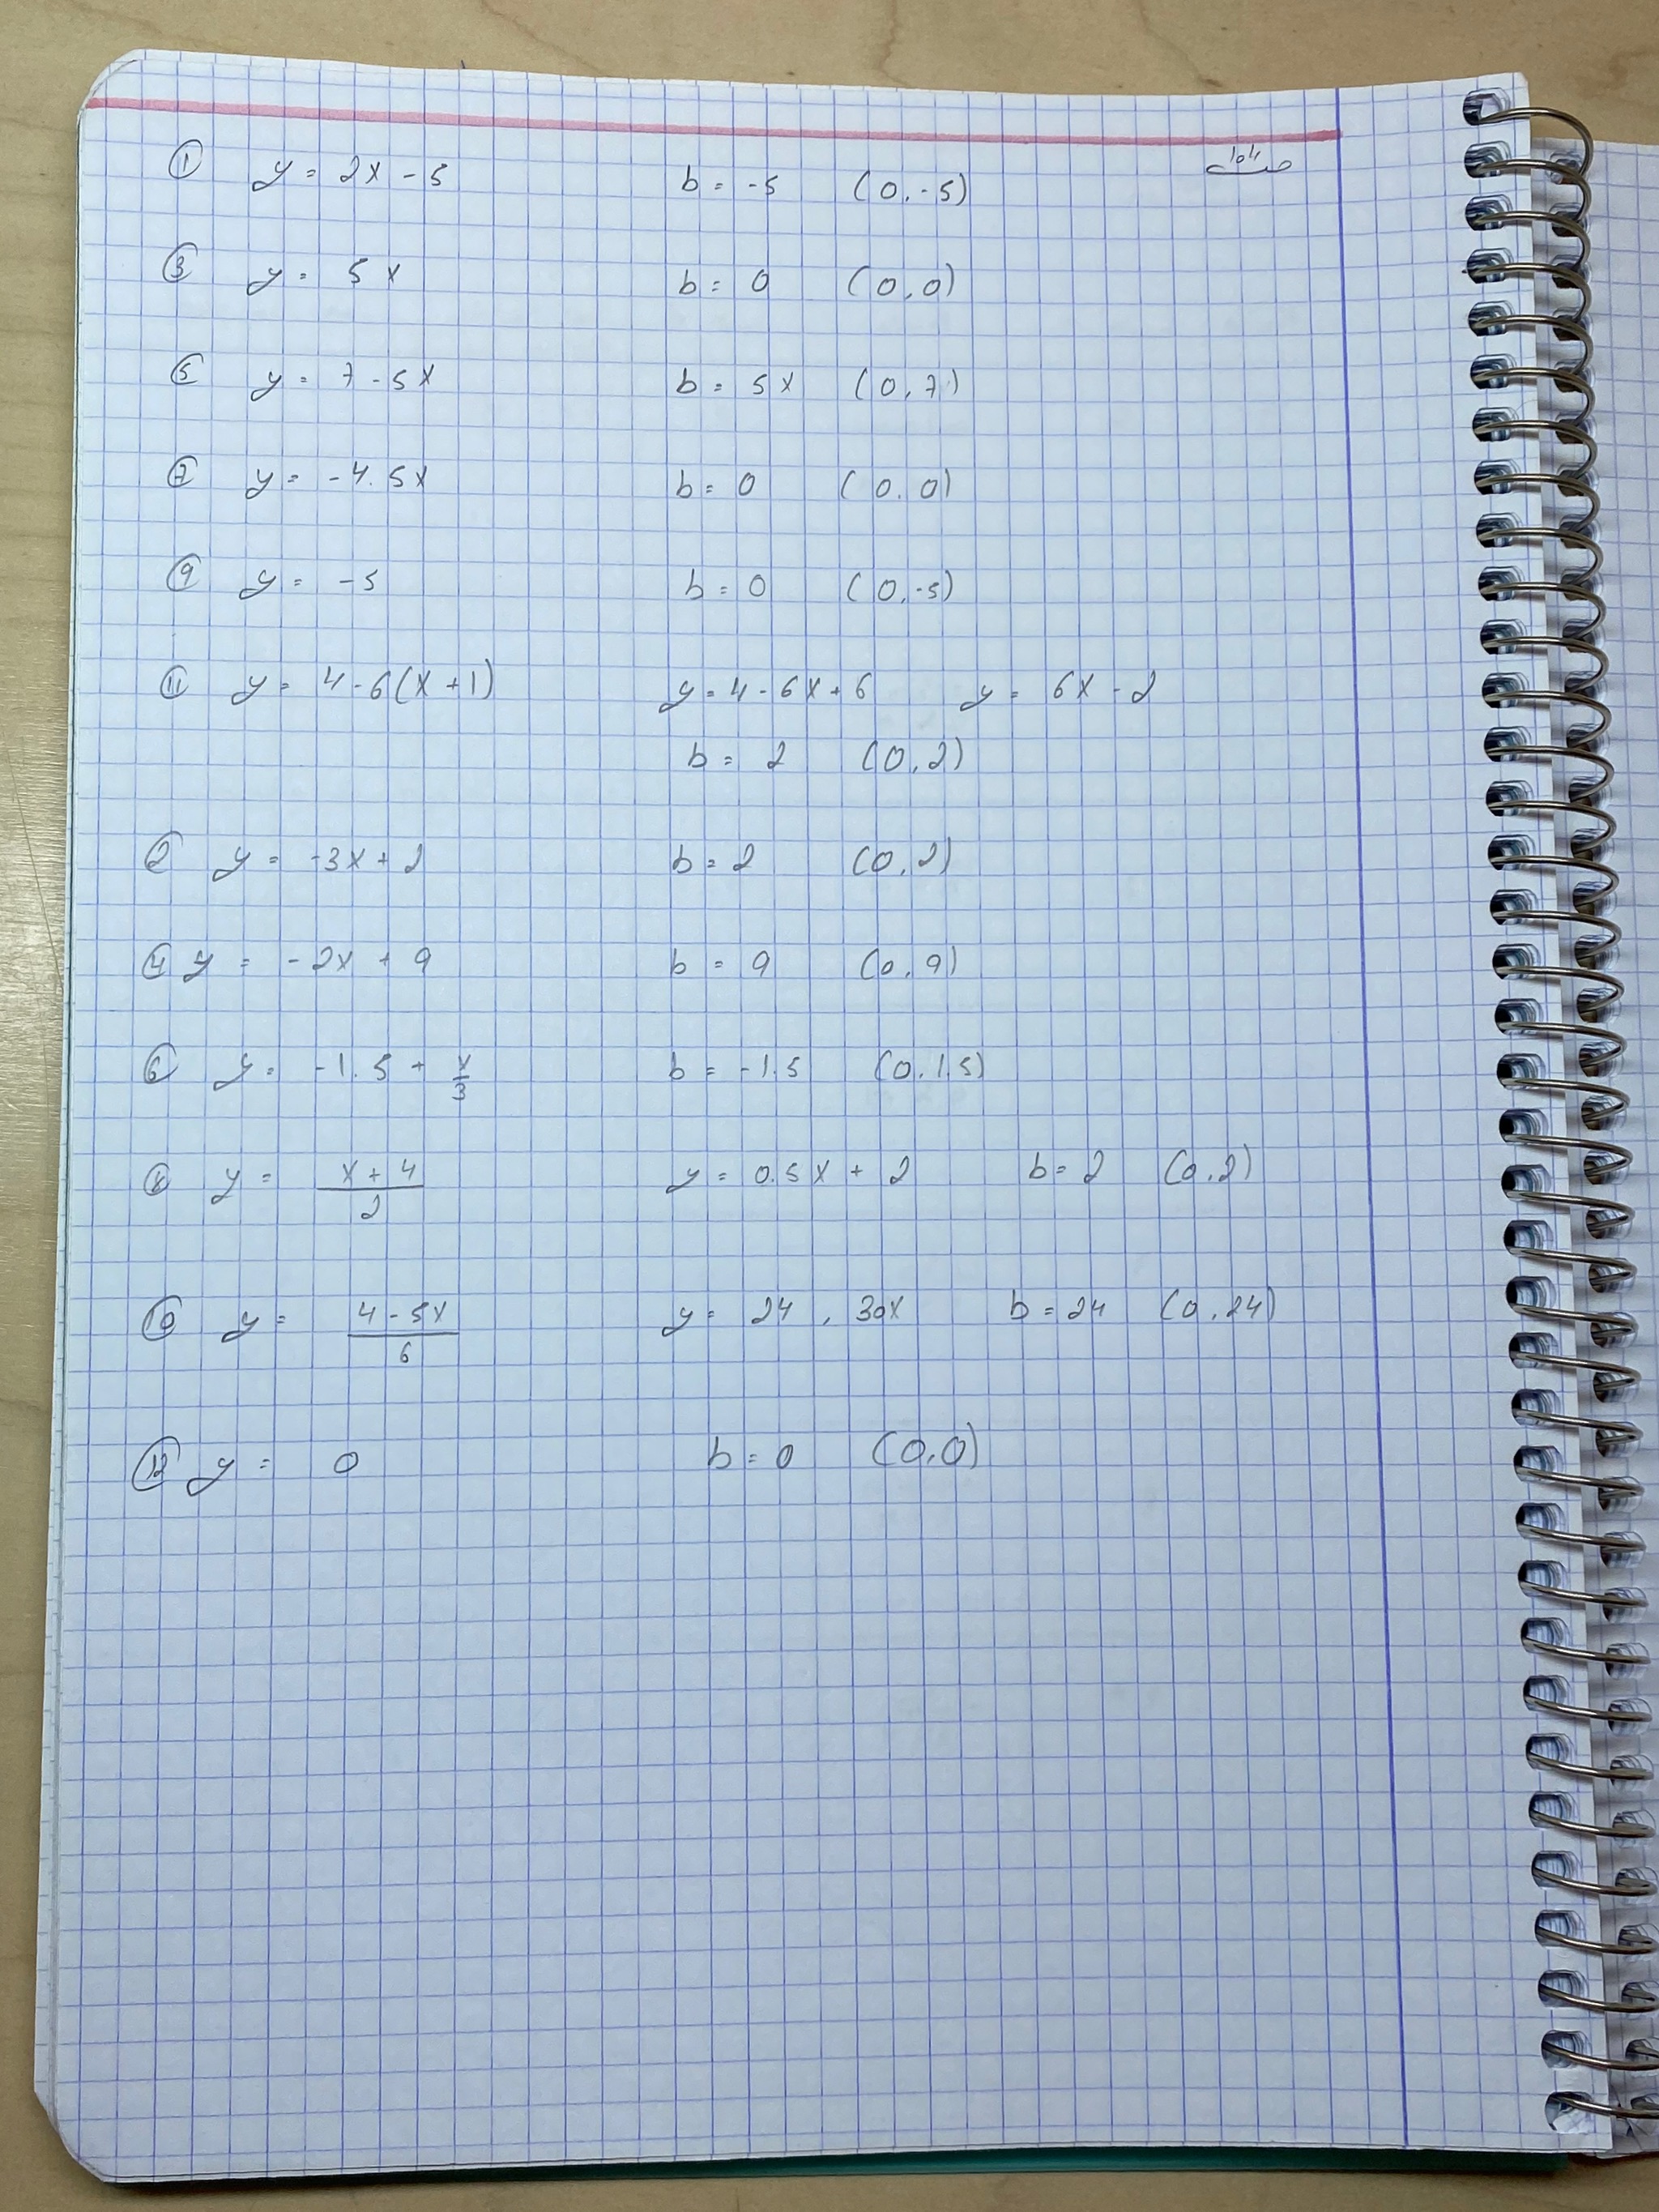 صـ ١٥٤
① y = 2x - 5 b = -5 (0,-5)
③ y = 5x b = 0 (0,0)
⑤ y = 7 - 5x b = 5x (0,7)
⑦ y = -4.5x b = 0 (0,0)
⑨ y = -5 b = 0 (0,-5)
⑪ y = 4-6(x+1) y = 4-6x+6 y = 6x-2
b = 2 (0,2)
② y = -3x + 2 b = 2 (0,2)
④ y = -2x + 9 b = 9 (0,9)
⑥ y = -1.5 + x/3 b = -1.5 (0,1.5)
⑧ y = (x+4)/2 y = 0.5x + 2 b = 2 (0,2)
⑩ y = (4-5x)/6 y = 24, 30x b = 24 (0,24)
⑫ y = 0 b = 0 (0,0)